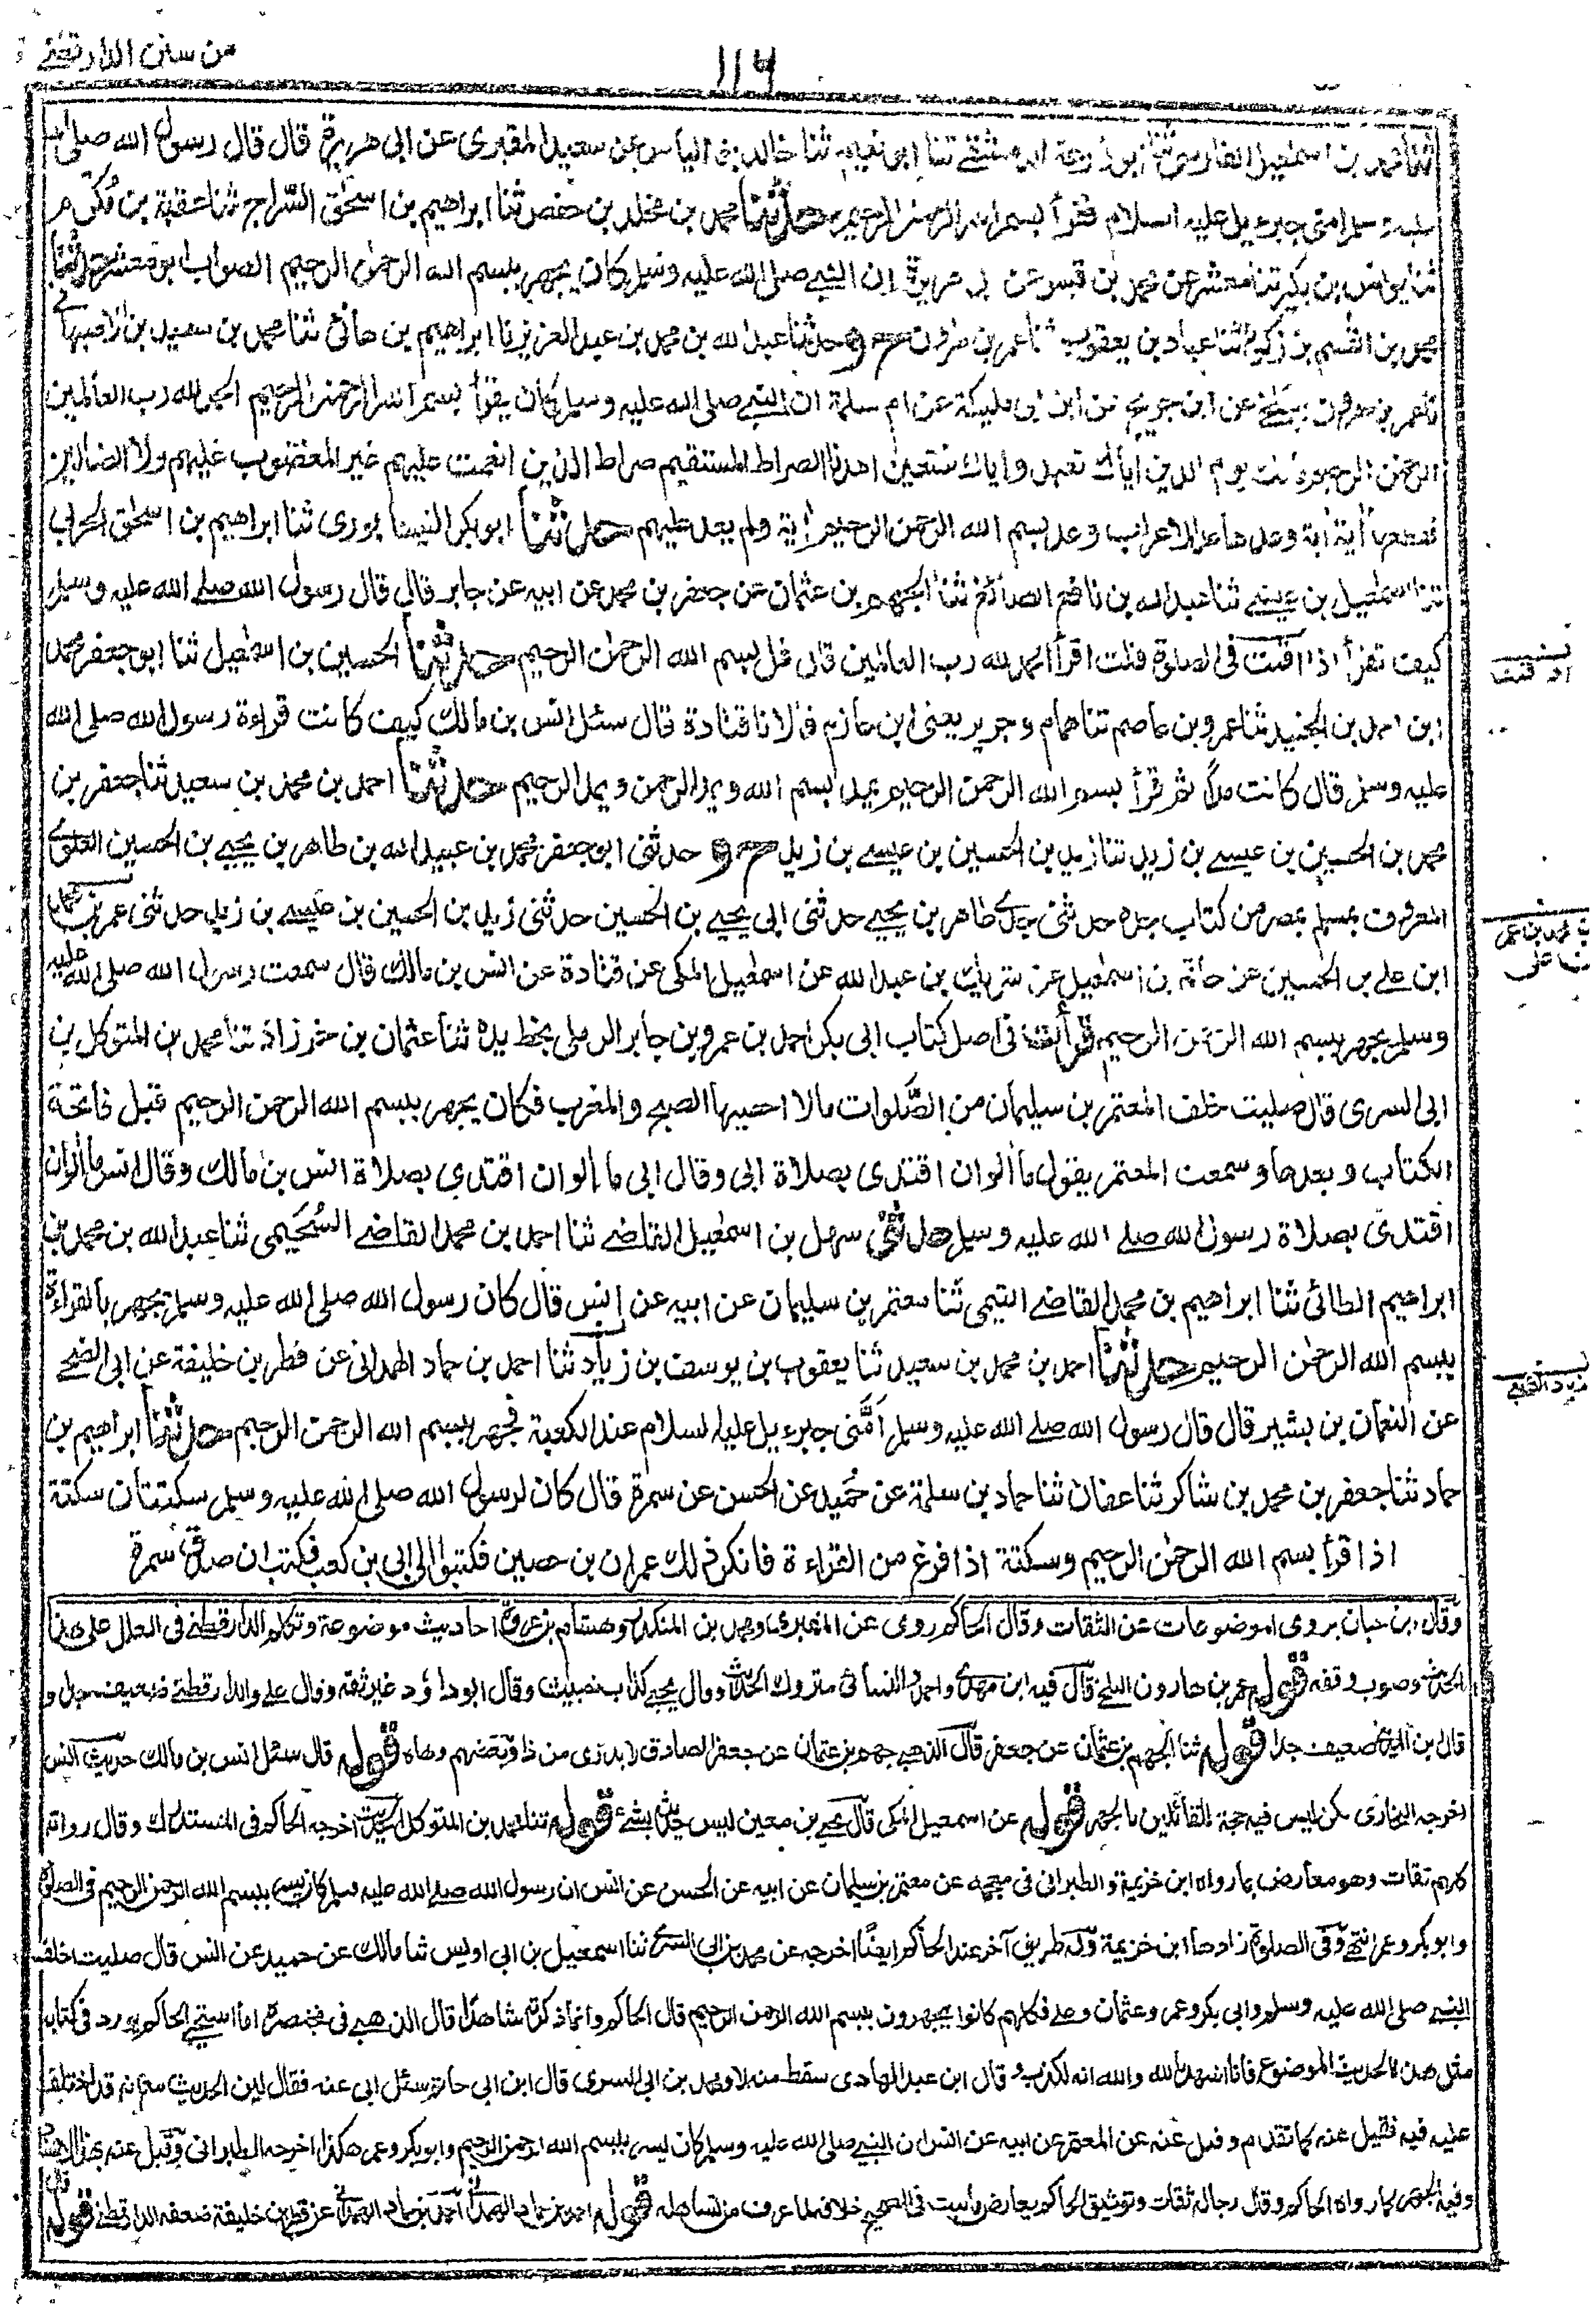 من سنن الدارقطنے
١١٦
ثنا محمد بن اسمعیل الفارسی ثنا ابو زرعة الدمشقے ثنا ابو نعیم ثنا خالد بن الیاس عن سعید المقبری عن ابی هریرة قال قال رسول الله صلی الله
علیه وسلم امنی جبرءیل علیه السلام فقرأ بسم الله الرحمن الرحیم حدثنا محمد بن مخلد بن حفص ثنا ابراهیم بن اسحٰق السّراج ثنا عقبة بن مُکْرم
ثنا یونس بن بکیر ثنا معشر عن محمد بن قیس عن ابی هریرة ان النبے صلی الله علیه وسلم کان یجهر ببسم الله الرحمٰن الرحیم الصواب ابو معشر حدثنا
محمد بن القسم بن زکریا ثنا عباد بن یعقوب ثنا عمر بن هارون ح و حدثنا عبدالله بن محمد بن عبدالعزیز نا ابراهیم بن هانئ ثنا محمد بن سعید بن الاصبهانے
نا عمر بن هارون البلخے عن ابن جریج عن ابن ابی ملیکة عن ام سلمة ان النبے صلی الله علیه وسلم کان یقرأ بسم الله الرحمن الرحیم الحمد لله رب العالمین
الرحمن الرحیم ملك یوم الدین ایاك نعبد وایاك نستعین اهدنا الصراط المستقیم صراط الذین انعمت علیهم غیر المغضوب علیهم ولا الضالین
فقطعها أیة أیة وعدها عد الاعراب وعد بسم الله الرحمن الرحیم أیة ولم یعد علیهم حدثنا ابوبکر النیسابوری ثنا ابراهیم بن اسحٰق الحربی
ثنا اسمٰعیل بن عیسے ثنا عبدالله بن نافع الصائغ ثنا الجهم بن عثمان عن جعفر بن محمد عن ابیه عن جابر قال قال رسول الله صلے الله علیه وسلم
کیف تقرأ اذا اقمت فی الصلوة قلت اقرأ الحمد لله رب العالمین قال قل بسم الله الرحمٰن الرحیم حدثنا الحسین بن اسمٰعیل ثنا ابو جعفر محمد
ابن احمد بن الجنید ثنا عمرو بن عاصم ثنا همام وجریر یعنی ابن حازم قالا نا قتادة قال سئل انس بن مالك کیف کانت قراءة رسول الله صلی الله
علیه وسلم قال کانت مدًّا ثم قرأ بسم الله الرحمن الرحیم یمد بسم الله ویمد الرحمن ویمد الرحیم حدثنا احمد بن محمد بن سعید ثنا جعفر بن
محمد بن الحسین بن عیسے بن زید ثنا زید بن الحسین بن عیسے بن زید ح و حدثنی ابو جعفر محمد بن عبیدالله بن طاهر بن یحیے بن الحسین العلوے
المعروف بمسلم بمصر من کتاب جده حدثنی جدے طاهر بن یحیے حدثنی ابی یحیے بن الحسین حدثنی زید بن الحسین بن عیسے بن زید حدثنی عمر بن محمد
ابن علے بن الحسین عن حاتم بن اسمٰعیل عن شریك بن عبدالله عن اسمٰعیل المکی عن قتادة عن انس بن مالك قال سمعت رسول الله صلی الله علیه
وسلم یجهر ببسم الله الرحمن الرحیم قرأت فی اصل کتاب ابی بکر احمد بن عمرو بن جابر الرملی بخط یده ثنا عثمان بن خرزاذ ثنا محمد بن المتوکل بن
ابی السری قال صلیت خلف المعتمر بن سلیمان من الصَّلوات مالا احصیها الصبح والمغرب فکان یجهر ببسم الله الرحمن الرحیم قبل فاتحة
الکتاب وبعدها وسمعت المعتمر یقول ما ألو ان اقتدی بصلاة ابی وقال ابی ما ألو ان اقتدی بصلاة انس بن مالك وقال انس ما ألو ان
اقتدی بصلاة رسول الله صلے الله علیه وسلم حدثنی سهل بن اسمٰعیل القاضے ثنا احمد بن محمد القاضے السُحَیمی ثنا عبدالله بن محمد بن
ابراهیم الطائی ثنا ابراهیم بن محمد القاضے التیمی ثنا معتمر بن سلیمان عن ابیه عن انس قال کان رسول الله صلی الله علیه وسلم یجهر بالقراءة
ببسم الله الرحمٰن الرحیم حدثنا احمد بن محمد بن سعید ثنا یعقوب بن یوسف بن زیاد ثنا احمد بن حماد الهمدانی عن فطر بن خلیفة عن ابی الضحے
عن النعمان بن بشیر قال قال رسول الله صلے الله علیه وسلم اَمَّنی جبرءیل علیه السلام عند الکعبة فجهر ببسم الله الرحمن الرحیم حدثنا ابراهیم بن
حماد ثنا جعفر بن محمد بن شاکر ثنا عفان ثنا حماد بن سلمة عن حُمَید عن الحسن عن سمرة قال کان لرسول الله صلی الله علیه وسلم سکتتان سکتة
اذا قرأ بسم الله الرحمٰن الرحیم وسکتة اذا فرغ من القراءة فانکر ذلك عمران بن حصین فکتبوا الی ابی بن کعب فکتب ان صدق سمرة
وقال ابن حبان یروی الموضوعات عن الثقات وقال الحاکم روی عن المقبری ومحمد بن المنکدر وهشام بن عروة احادیث موضوعة وتکلم الدارقطنے فی العلل علی هذا
الحدیث وصوب وقفه قوله عمر بن هارون البلخے قال فیه ابن مهدی واحمد والنسائی متروك الحدیث وقال یحیے کذاب خبیث وقال ابو داؤد غیر ثقه وقال علے والدارقطنے ضعیف جدا و
قال ابن المدینے ضعیف جدا قوله ثنا الجهم بن عثمان عن جعفر قال الذهبے جهم بن عثمان عن جعفر الصادق لا یدری من ذا وبعضهم وهاه قوله قال سئل انس بن مالك حدیث انس
اخرجه البخاری لکن لیس فیه حجة للقائلین بالجهر قوله عن اسمعیل المکی قال یحیے بن معین لیس حدیثه بشئ قوله ثنا محمد بن المتوکل الحدیث اخرجه الحاکم فی المستدرك وقال رواته
کلهم ثقات وهو معارض بما رواه ابن خزیمة والطبرانی فی معجمه عن معتمر بن سلیمان عن ابیه عن الحسن عن انس ان رسول الله صلے الله علیه وسلم کان یسر ببسم الله الرحمن الرحیم فی الصلوة
وابوبکر وعمر انتهے وفی الصلوة زادها ابن خزیمة وله طریق آخر عند الحاکم ایضًا اخرجه عن محمد بن ابی السری ثنا اسمعیل بن ابی اویس ثنا مالك عن حمید عن انس قال صلیت خلف
النبے صلی الله علیه وسلم وابی بکر وعمر وعثمان وعلے فکلهم کانوا یجهرون ببسم الله الرحمن الرحیم قال الحاکم وانما ذکرته شاهدا قال الذهبے فی مختصره اما استحیے الحاکم یورد فی کتابه
مثل هذا الحدیث الموضوع فانا اشهد بالله والله انه لکذب وقال ابن عبدالهادی سقط منه لا ومحمد بن ابی السری قال ابن ابی حاتم سئل ابی عنه فقال لین الحدیث مع انه قد اختلف
علیه فیه فقیل عنه کما تقدم وقیل عنه عن المعتمر عن ابیه عن انس ان النبے صلی الله علیه وسلم کان یسر ببسم الله الرحمن الرحیم وابوبکر وعمر هکذا اخرجه الطبرانی وقیل عنه بهذا الاسناد
وفیه الجهر کما رواه الحاکم وقال رجاله ثقات وتوثیق الحاکم یعارض ما ثبت فی الصحیح خلافه لما عرف من تساهله قوله احمد بن حماد الهمدانی احمد بن حماد الهمدانے عن فطر بن خلیفة ضعفه الدارقطنے قوله قال